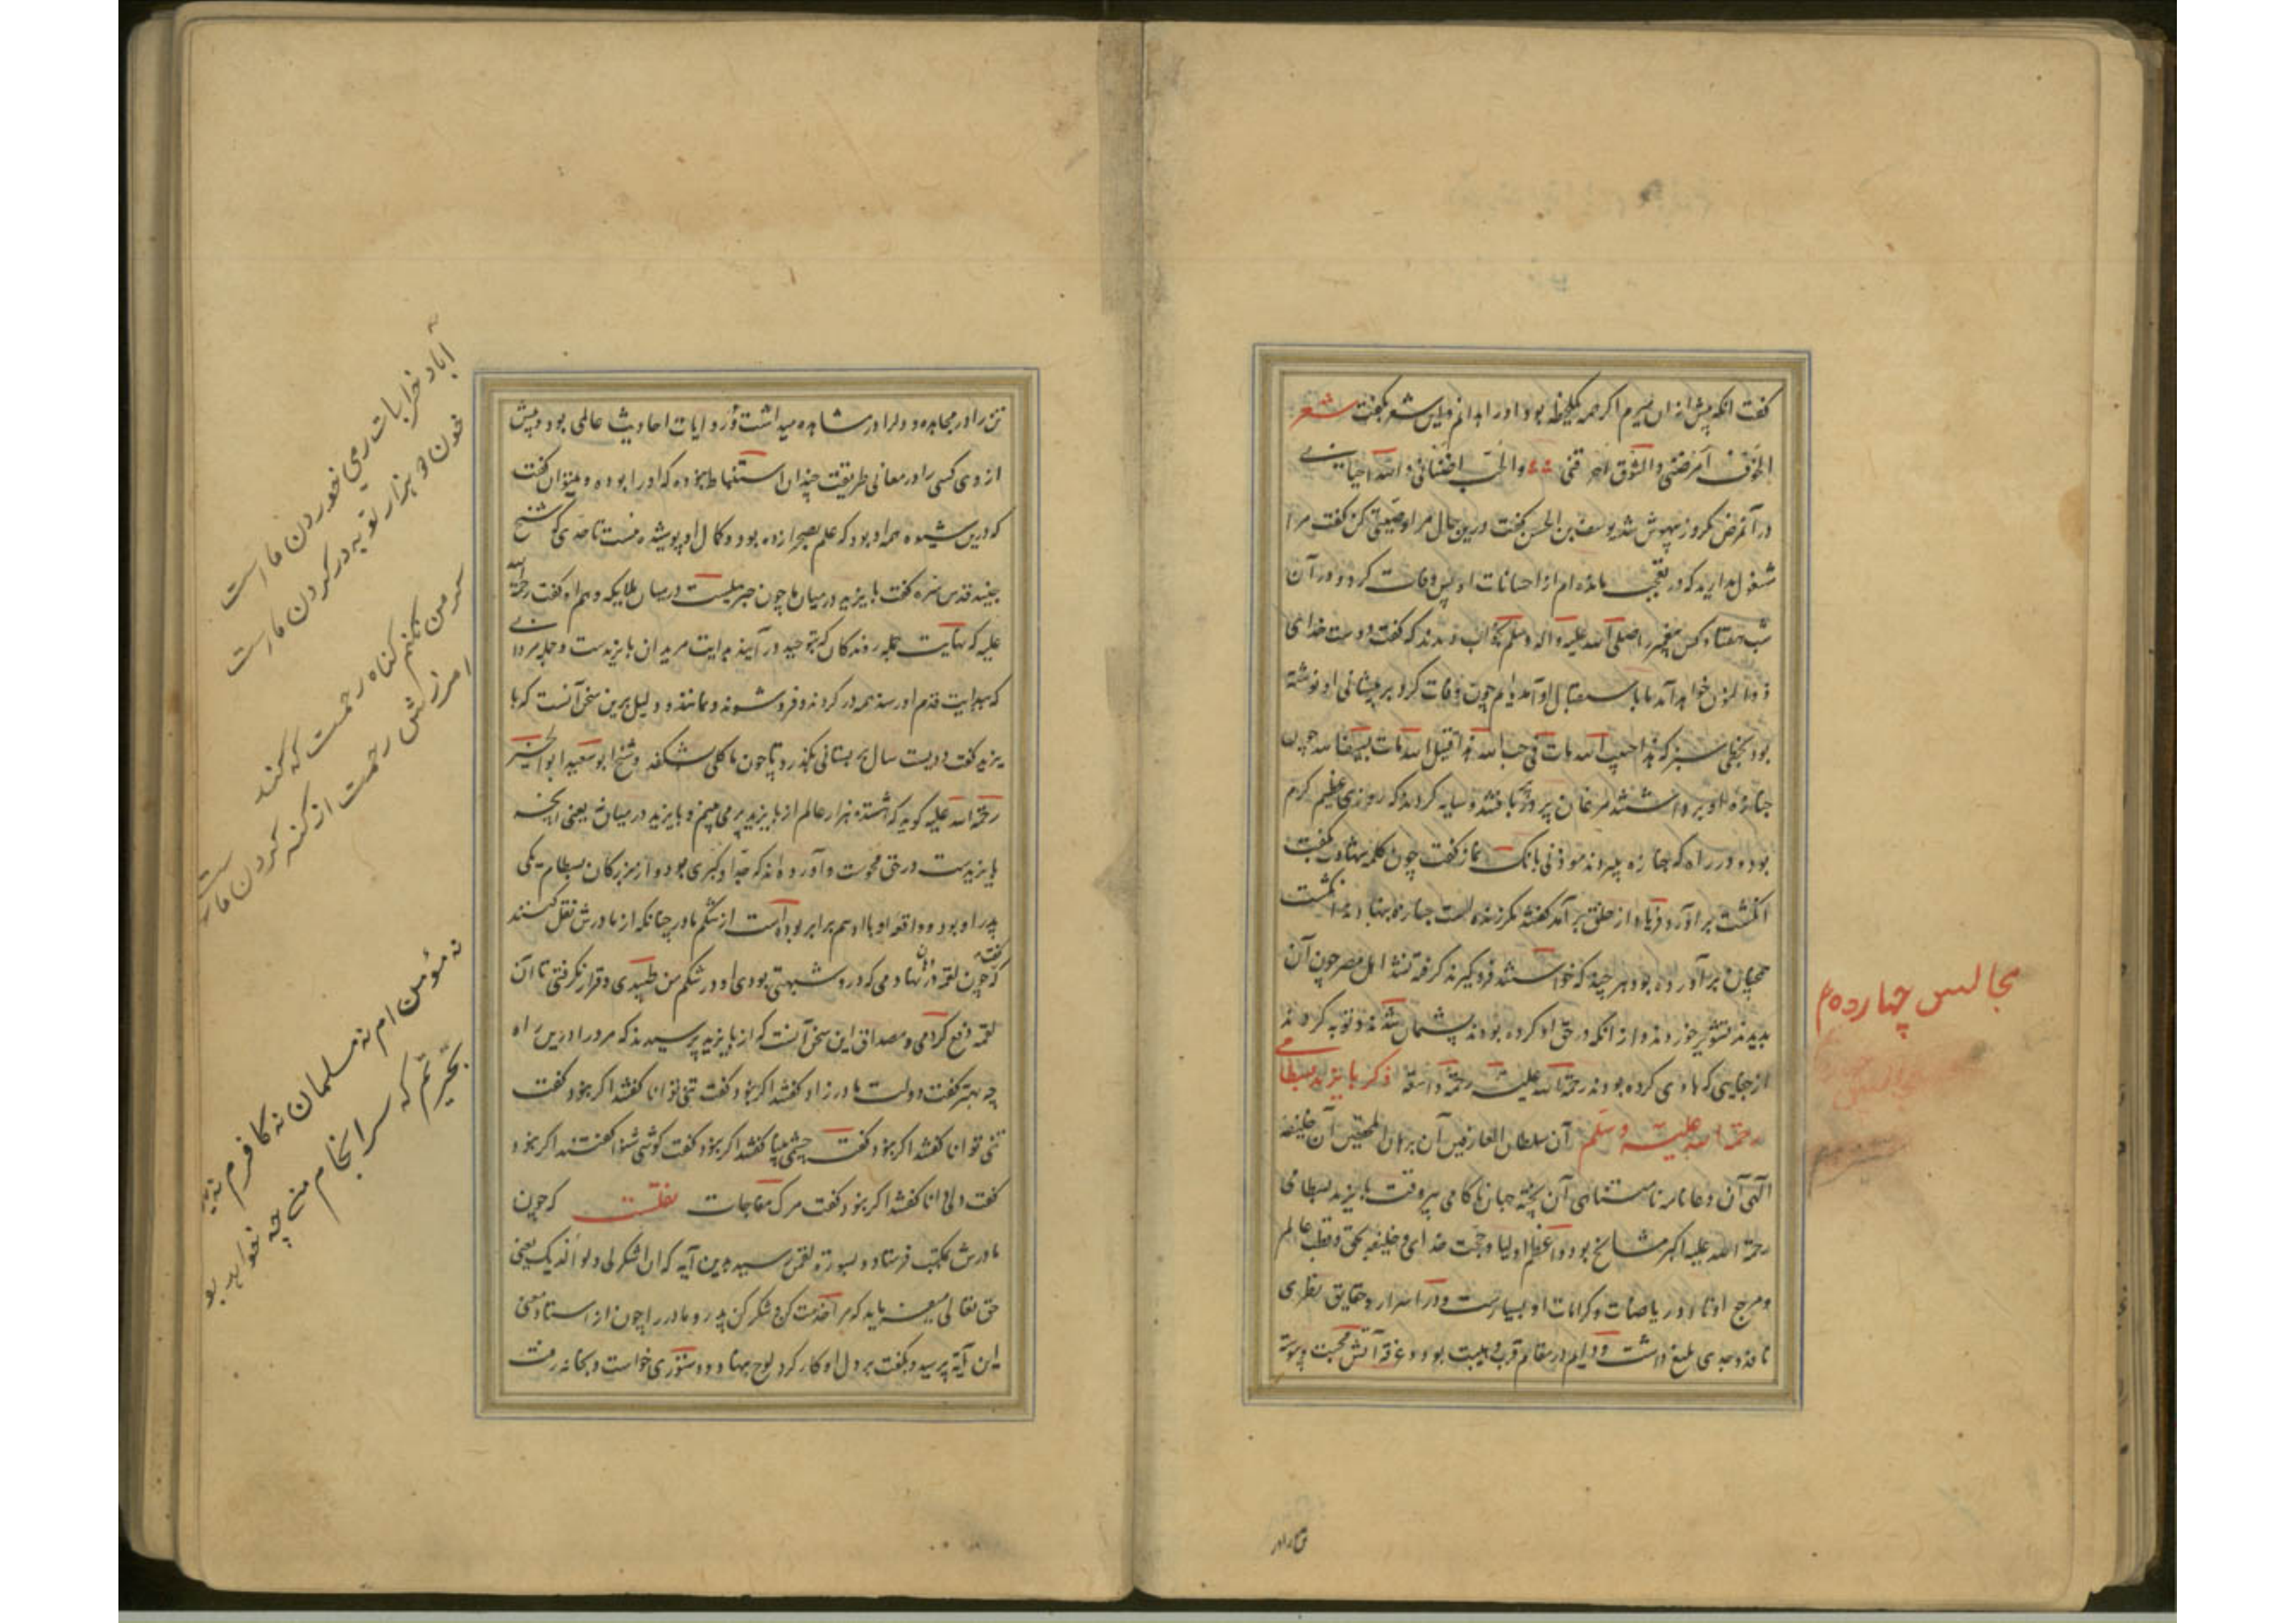 گفت آنکه پیش از آن بمیرم اگرچه یک لحظه بود او را بدانم و این شعر بگفت شعر
الخوف امرضنی والشوق احرقنی والحب اضنانی والله احیانی
در آن مرض یکروز بیهوش شد یوسف بن الحسن گفت درین حال مرا وصیتی کن گفت مرا
مشغول مدارید که در تعجب مانده‌ام از احسانات او پس وفات کرد و در آن
شب هفتاد کس پیغمبر را صلی الله علیه واله وسلم بخواب دیدند که گفت دوست خدای
ذوالنون خواهد آمد ما باستقبال او آمده‌ایم چون وفات کرد بر پیشانی او نوشته
بود بخطی سبز که هذا حبیب الله مات فی حب الله هذا قتیل الله مات بسیف الله چون
جنازه او برداشتند مرغان پر در پر بافتند و سایه کردند که روزی عظیم گرم
بود و در راه که جنازه میبردند موذنی بانک نماز گفت چون کلمه شهادت بگفت
انگشت برآورد فریاد از خلق برآمد گفتند مگر زنده است جنازه بنهادند انگشت
همچنان برآورده بود هر چند که خواستند فرو گیرند گرفته نشد اهل مصر چون آن
بدیدند تشویر خوردند و از آنکه در حق او کرده بودند پشیمان شدند و توبه کردند
از جفایی که با وی کرده بودند رحمة الله علیه رحمة واسعة ذکر بایزید بسطامی
رحمة الله علیه وسلم آن سلطان العارفین آن برهان المحققین آن خلیفه
الهی آن دعامه نامتناهی آن پخته جهان ناکامی پیر وقت بایزید بسطامی
رحمة الله علیه اکبر مشایخ بود و اعظم اولیا و حجت خدای و خلیفه بحق و قطب عالم
و مرجع اوتاد و ریاضات و کرامات او بسیارست و در اسرار و حقایق نظری
نافذ و جدی بلیغ داشت و دایم در مقام قرب و هیبت بود و غرقه آتش محبت پیوسته
مجالس چهارده
تن را در
تن را در مجاهده و دل را در مشاهده میداشت و در روایات احادیث عالی بود و پیش
از وی کسی را در معانی طریقت چندان استنباط نبوده که او را بوده و میتوان گفت
که درین شیوه همه او بود که علم بصحرا زده بود و کمال او پوشیده نیست تا حدی که شیخ
جنید قدس سره گفت بایزید در میان ما چون جبرییلست در میان ملایکه و هم او گفت رحمة الله
علیه که نهایت جمله روندگان که بتوحید درآیند بدایت مریدان بایزیدست و جمله مردان
که ببدایت قدم او رسند همه در گردند و فرو شوند و نمانند و دلیل برین سخن آنست که با
یزید گفت دویست سال بر بستانی بگذرد تا چون ما گلی بشکفد و شیخ ابوسعید ابوالخیر
رحمة الله علیه گوید که هشتده هزار عالم از بایزید پر می‌بینم و بایزید در میان نه یعنی آنچه
بایزیدست در حق محوست و آورده‌اند که جد او گبری بود و از بزرگان بسطام یکی
پدر او بود و واقعه او با او هم برابر بوده است از شکم مادر چنانکه از مادرش نقل کنند
که گفت چون لقمه در دهان نهادمی که درو شبهتی بودی او در شکم من طپیدی و قرار نگرفتی تا آن
لقمه دفع کردمی و مصداق این سخن آنست که از بایزید پرسیدند که مرد را درین راه
چه بهتر گفت دولت مادرزاد گفتند اگر نبود گفت تنی توانا گفتند اگر نبود گفت
تنی توانا گفتند اگر نبود گفت چشمی بینا گفتند اگر نبود گفت گوشی شنوا گفتند اگر نبود
گفت دلی دانا گفتند اگر نبود گفت مرگ مفاجات نقلست که چون
مادرش بمکتب فرستاد و بسورة لقمن رسید بدین آیه که ان اشکر لی ولوالدیک یعنی
حق تعالی میفرماید که مرا خدمت کن و شکر کن پدر و مادر را چون از استاد معنی
این آیه پرسید و بگفت بر دل او کار کرد لوح بنهاد و دستوری خواست و بخانه رفت
آباد خرابات ز می خوردن ماست
خون دو هزار توبه در گردن ماست
گر من نکنم گناه رحمت که کند
آمرزش رحمت از گنه کردن ماست
نه مؤمن ام نه مسلمان نه کافرم نه
بحیرتم که سرانجام من چه خواهد بو